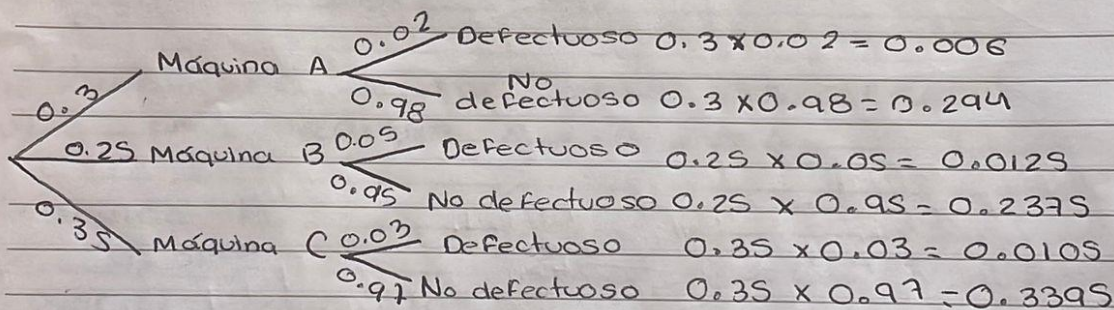 0.02 Defectuoso 0.3 x 0.02 = 0.006
0.3 Máquina A
0.98 No defectuoso 0.3 x 0.98 = 0.294
0.25 Máquina B 0.05 Defectuoso 0.25 x 0.05 = 0.0125
0.95 No defectuoso 0.25 x 0.95 = 0.2375
0.35 Máquina C 0.03 Defectuoso 0.35 x 0.03 = 0.0105
0.97 No defectuoso 0.35 x 0.97 = 0.3395